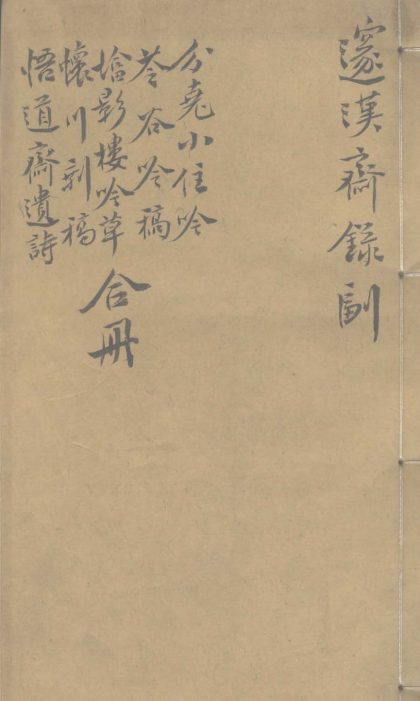 邃漢齋錄副
分堯小住吟
苓谷吟稿
塔影樓吟草
懷川剩稿
悟道齋遺詩
合冊